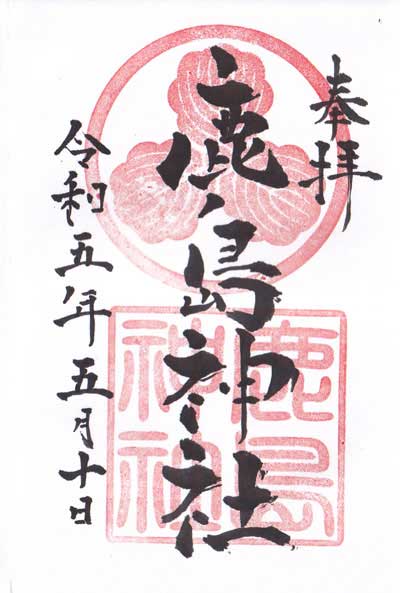 奉拝
鹿島神社
令和五年五月十日
鹿島
神社